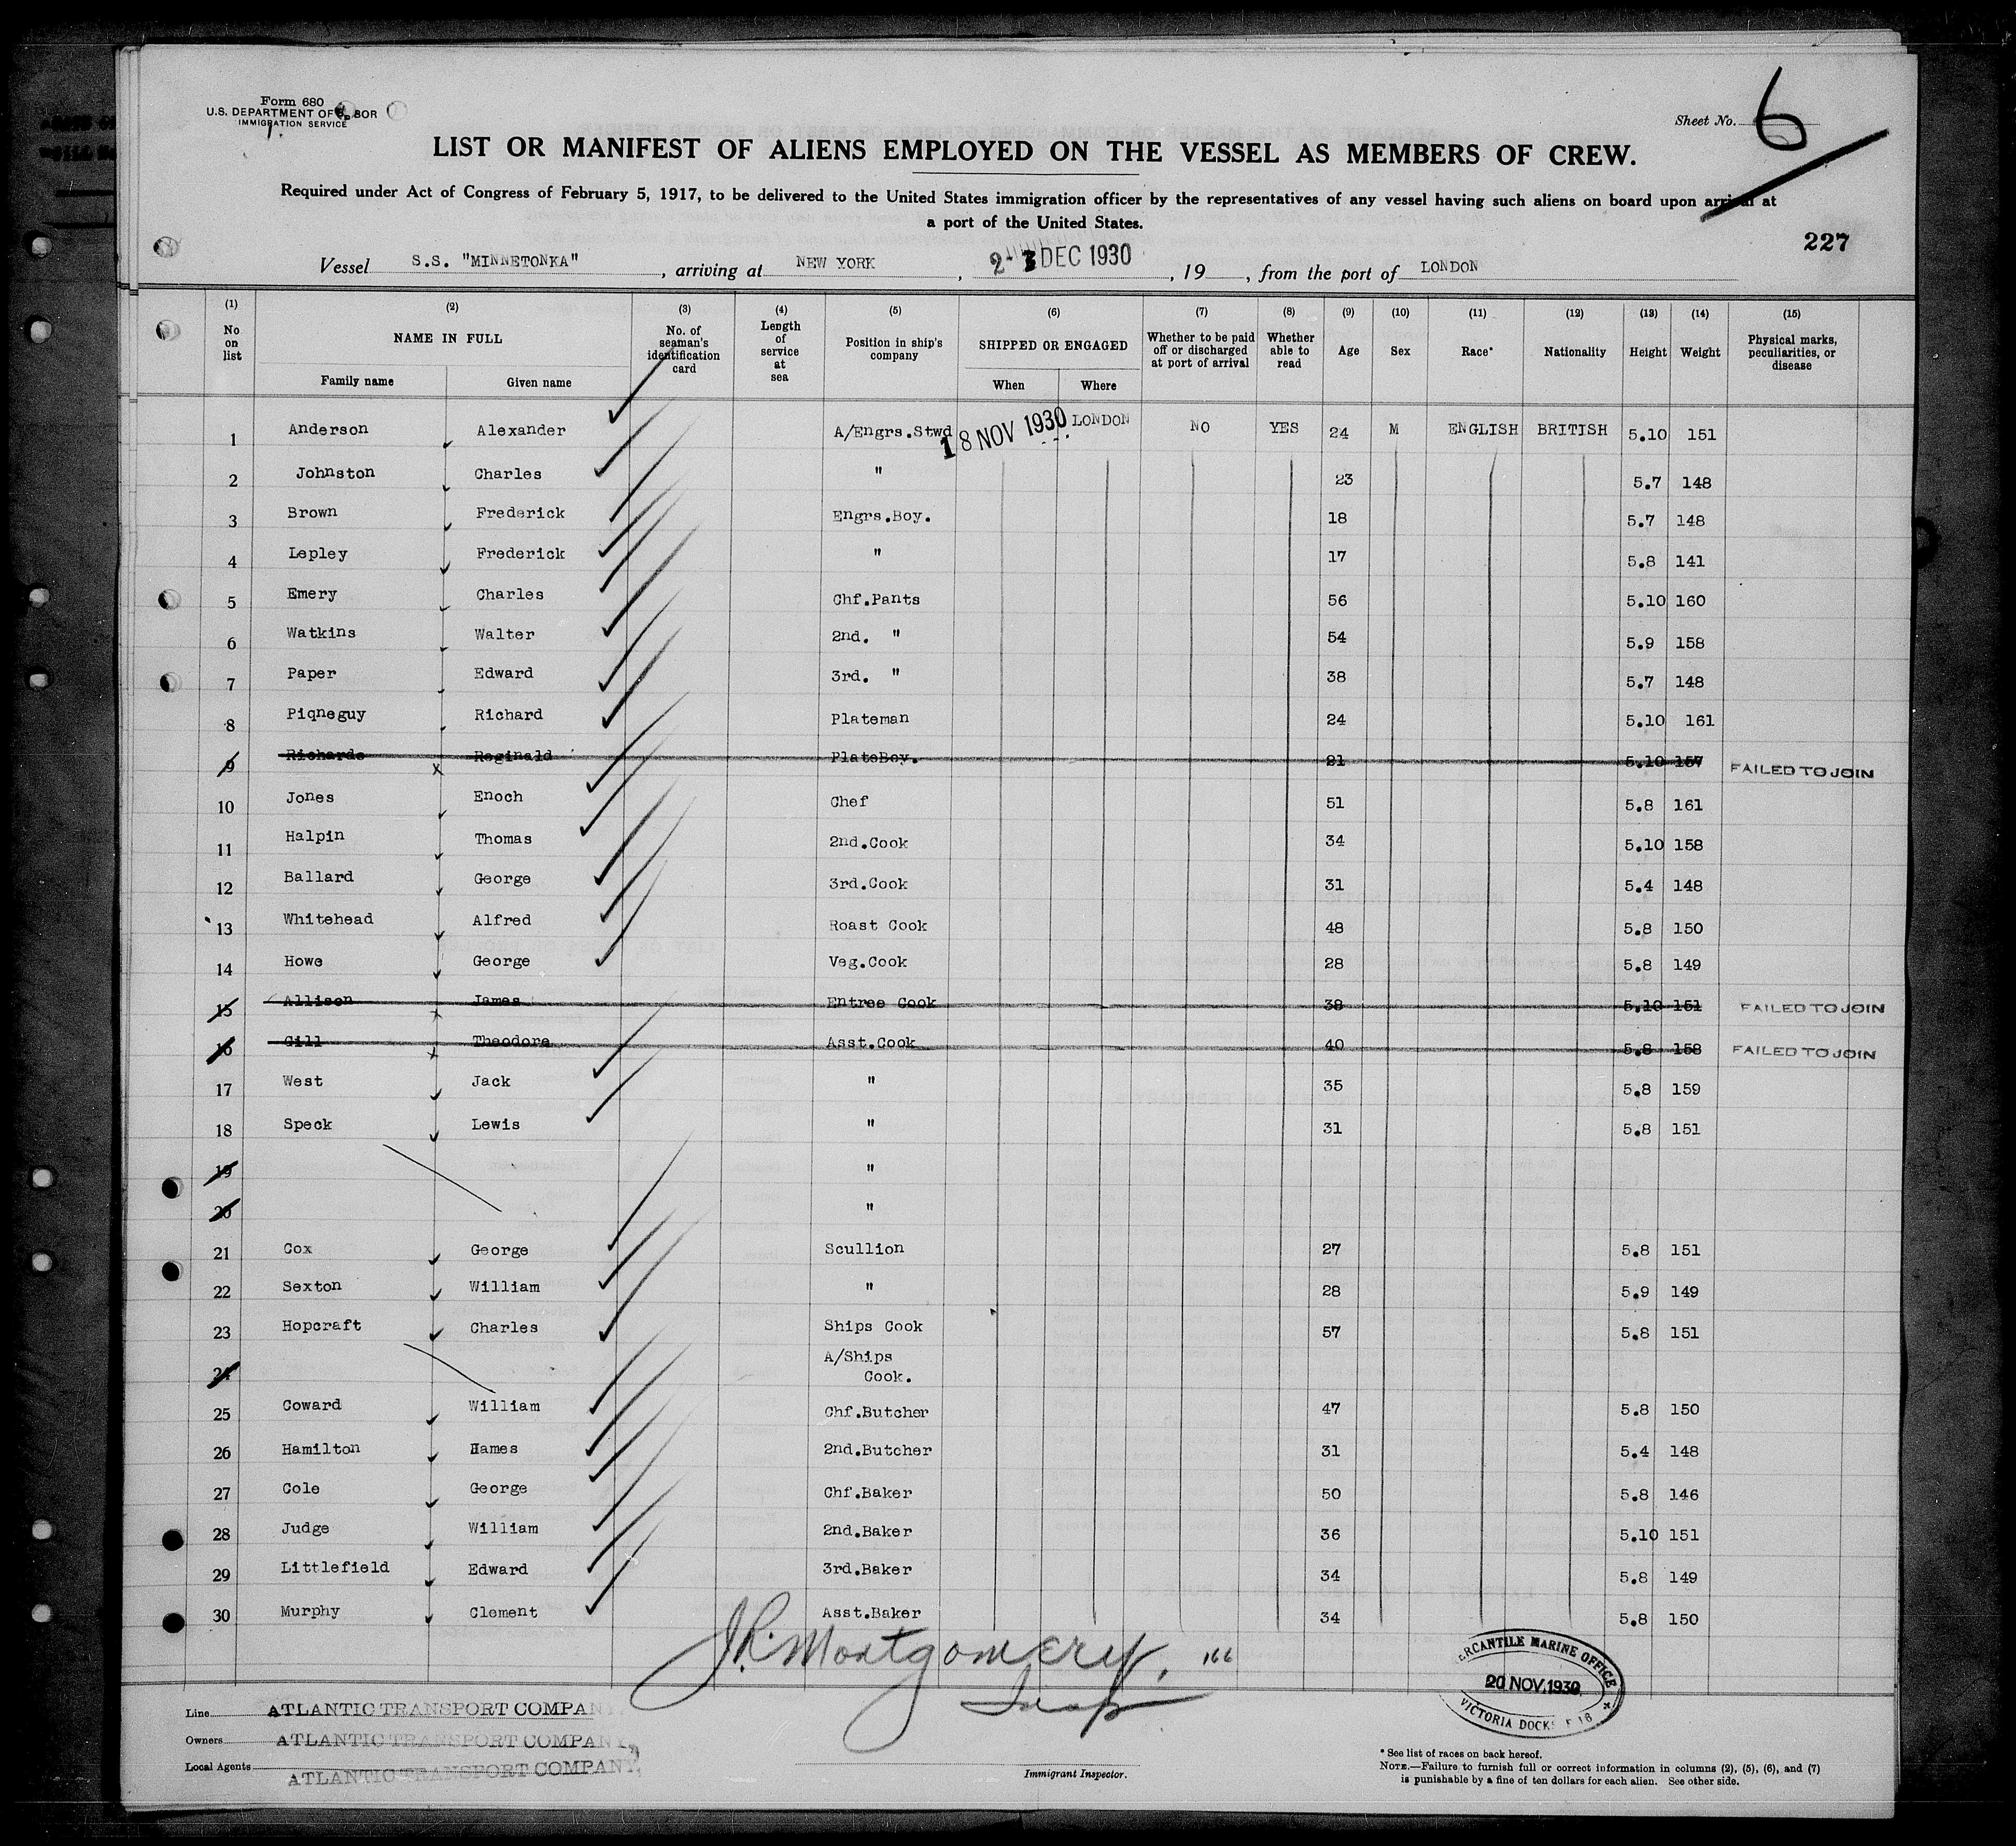 Form 680
U.S. DEPARTMENT OF LABOR
IMMIGRATION SERVICE
Sheet No. 6
LIST OR MANIFEST OF ALIENS EMPLOYED ON THE VESSEL AS MEMBERS OF CREW.
Required under Act of Congress of February 5, 1917, to be delivered to the United States immigration officer by the representatives of any vessel having such aliens on board upon arrival at
a port of the United States.
227
Vessel S.S. "MINNETONKA", arriving at NEW YORK, 2- DEC 1930, 19 , from the port of LONDON
(1) No on list (2) NAME IN FULL Family name Given name (3) No. of seaman's identification card (4) Length of service at sea (5) Position in ship's company (6) SHIPPED OR ENGAGED When Where (7) Whether to be paid off or discharged at port of arrival (8) Whether able to read (9) Age (10) Sex (11) Race* (12) Nationality (13) Height (14) Weight (15) Physical marks, peculiarities, or disease
1 Anderson Alexander A/Engrs.Stwd 18 NOV 1930 LONDON NO YES 24 M ENGLISH BRITISH 5.10 151
2 Johnston Charles " 23 5.7 148
3 Brown Frederick Engrs.Boy. 18 5.7 148
4 Lepley Frederick " 17 5.8 141
5 Emery Charles Chf.Pants 56 5.10 160
6 Watkins Walter 2nd. " 54 5.9 158
7 Paper Edward 3rd. " 38 5.7 148
8 Piqneguy Richard Plateman 24 5.10 161
9 Richards Reginald PlateBoy. 21 5.10 157 FAILED TO JOIN
10 Jones Enoch Chef 51 5.8 161
11 Halpin Thomas 2nd.Cook 34 5.10 158
12 Ballard George 3rd.Cook 31 5.4 148
13 Whitehead Alfred Roast Cook 48 5.8 150
14 Howe George Veg.Cook 28 5.8 149
15 Allison James Entree Cook 38 5.10 151 FAILED TO JOIN
16 Gill Theodore Asst.Cook 40 5.8 158 FAILED TO JOIN
17 West Jack " 35 5.8 159
18 Speck Lewis " 31 5.8 151
19 "
20 "
21 Cox George Scullion 27 5.8 151
22 Sexton William " 28 5.9 149
23 Hopcraft Charles Ships Cook 57 5.8 151
24 A/Ships
Cook.
25 Coward William Chf.Butcher 47 5.8 150
26 Hamilton Hames 2nd.Butcher 31 5.4 148
27 Cole George Chf.Baker 50 5.8 146
28 Judge William 2nd.Baker 36 5.10 151
29 Littlefield Edward 3rd.Baker 34 5.8 149
30 Murphy Clement Asst.Baker 34 5.8 150
J.R. Montgomery.
Insp
MERCANTILE MARINE OFFICE
20 NOV.1930
VICTORIA DOCKS E 16
Line ATLANTIC TRANSPORT COMPANY
Owners ATLANTIC TRANSPORT COMPANY,
Local Agents ATLANTIC TRANSPORT COMPANY,
Immigrant Inspector.
* See list of races on back hereof.
NOTE.—Failure to furnish full or correct information in columns (2), (5), (6), and (7)
is punishable by a fine of ten dollars for each alien. See other side.